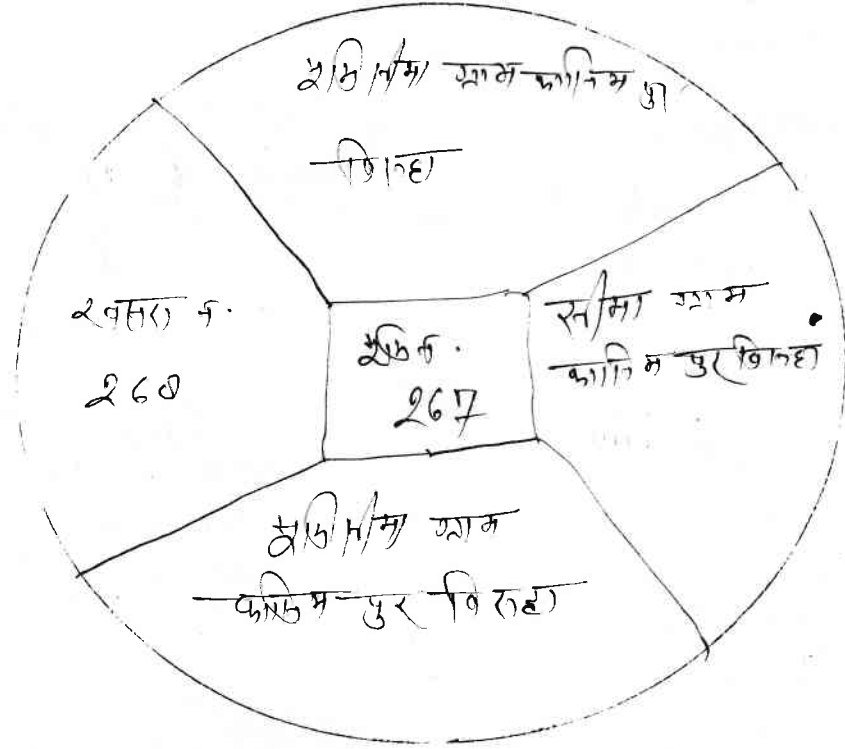 भूमि सीमा ग्राम कासिम पुर
बिरुहा
खसरा नं.
268
भूमि नं.
267
सीमा ग्राम
कासिम पुर बिरुहा
भूमि सीमा ग्राम
कासिम पुर बिरुहा